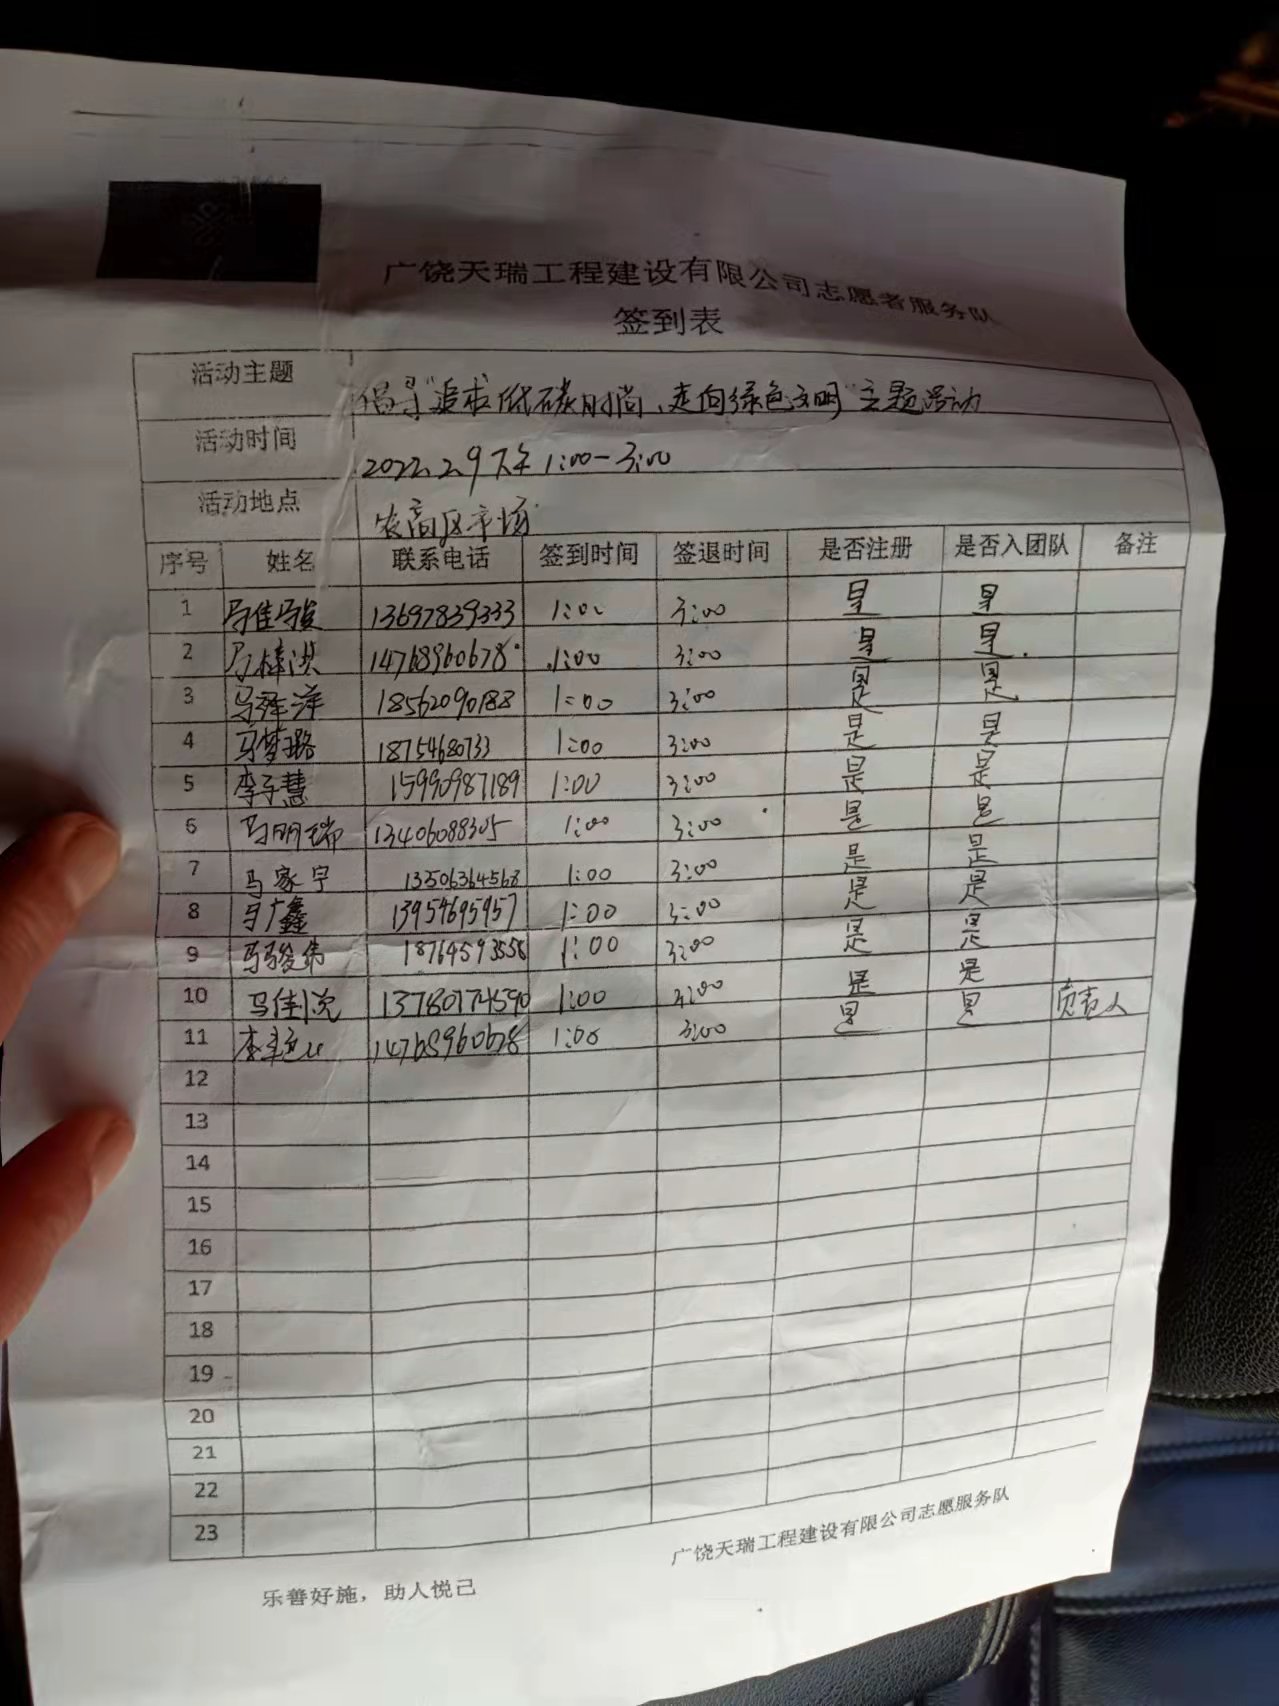 广饶天瑞工程建设有限公司志愿者服务队
签到表
活动主题 倡导"追求低碳时尚、走向绿色文明"主题活动
活动时间 2022.2.9下午1:00-3:00
活动地点 农商区市场
序号 姓名 联系电话 签到时间 签退时间 是否注册 是否入团队 备注
1 马佳骏 13697839333 1:00 3:00 是 是
2 马梓淇 14768960678 1:00 3:00 是 是
3 马泽洋 18562090188 1:00 3:00 是 是
4 马梦璐 18754680733 1:00 3:00 是 是
5 李子慧 15990987189 1:00 3:00 是 是
6 马明瑞 13406088305 1:00 3:00 是 是
7 马家宇 13506364568 1:00 3:00 是 是
8 马广鑫 13954695957 1:00 3:00 是 是
9 马骏伟 18764593558 1:00 3:00 是 是
10 马佳悦 13780774590 1:00 3:00 是 是
11 李 14768960678 1:00 3:00 是 是 负责人
12
13
14
15
16
17
18
19
20
21
22
23
广饶天瑞工程建设有限公司志愿服务队
乐善好施，助人悦己